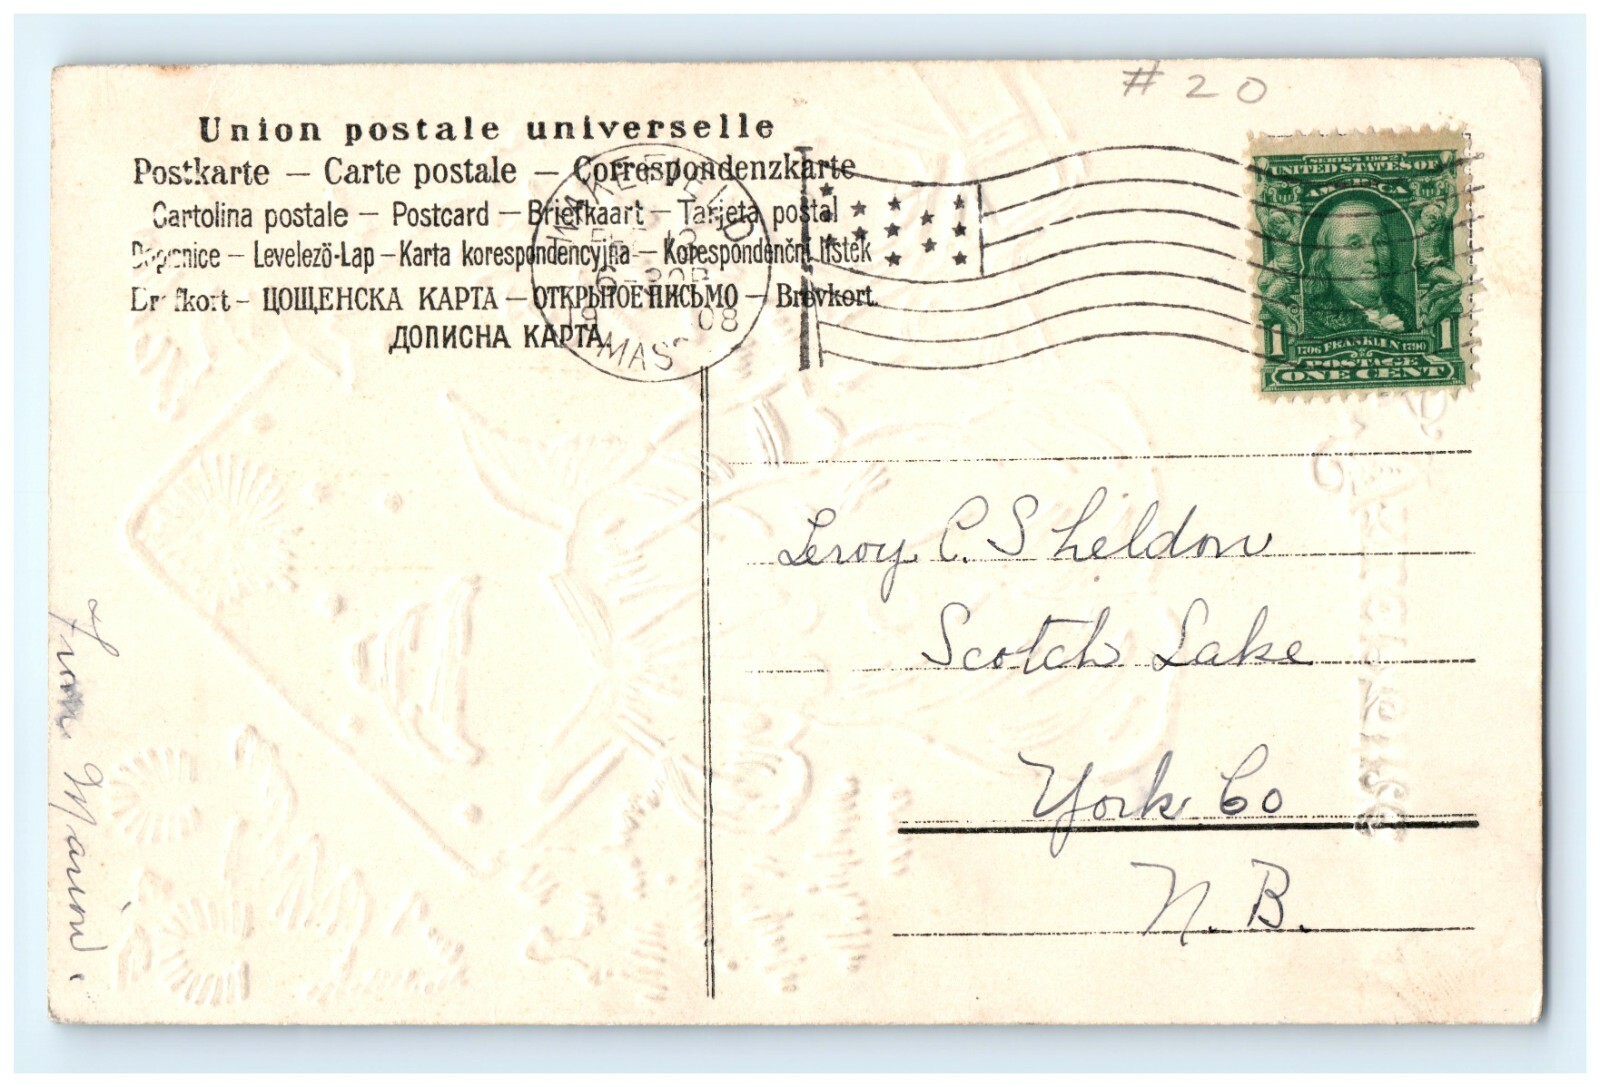 # 20
Union postale universelle
Postkarte — Carte postale — Correspondenzkarte
Cartolina postale — Postcard — Briefkaart — Tarjeta postal
Levelezö-Lap — Karta korespondencyjna — Korespondenční lístek
ЦОЩЕНСКА КАРТА — ОТКРЫТОЕ ПИСЬМО — Brevkort.
ДОПИСНА КАРТА
WAKEFIELD
FEB 13
6-30P
19 08
MASS
SERIES 1902
UNITED STATES OF
AMERICA
1 1
1706 FRANKLIN 1790
POSTAGE
ONE CENT
Leroy C. Sheldon
Scotch Lake
York Co
N. B.
From Marion.